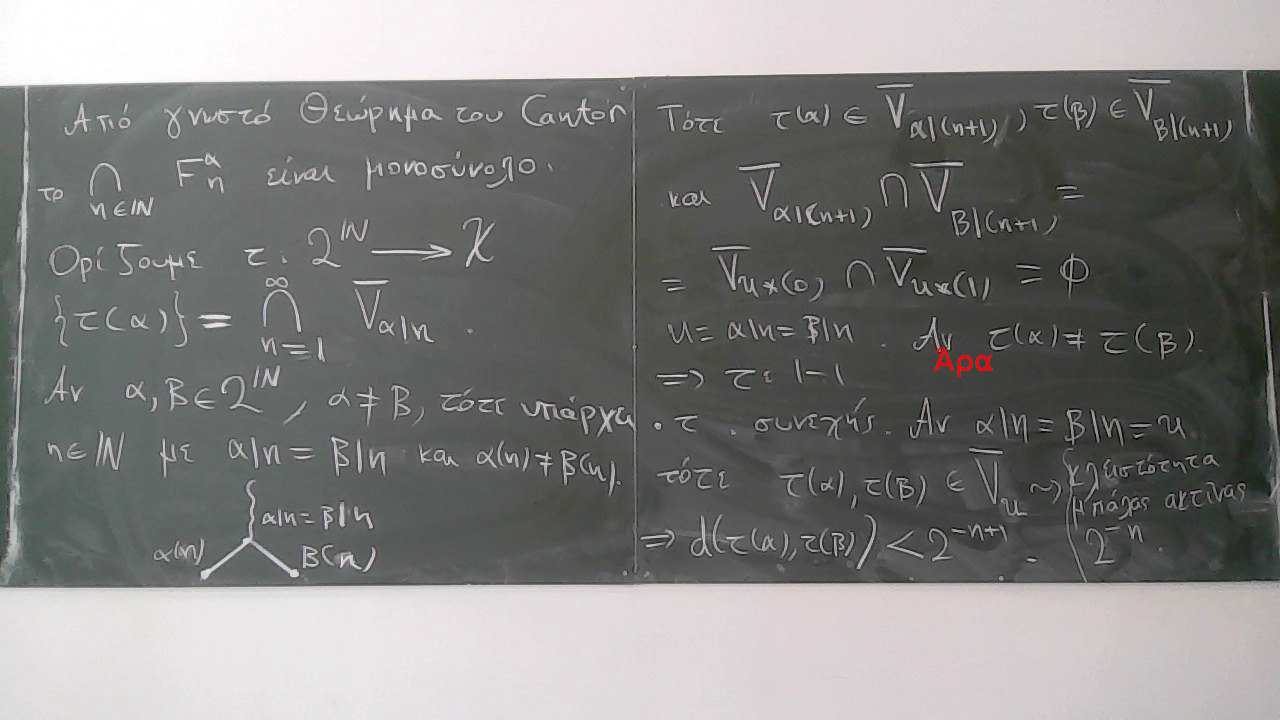 Από γνωστό Θεώρημα του Cantor
το ⋂_{n∈ℕ} F_n^α είναι μονοσύνολο.
Ορίζουμε τ: 2^ℕ ⟶ X
{τ(α)} = ⋂_{n=1}^∞ V̅_{α|n} .
Αν α, β ∈ 2^ℕ, α ≠ β, τότε υπάρχει
n∈ℕ με α|n = β|n και α(n) ≠ β(n).
α|n = β|n
α(n) β(n)
Τότε τ(α) ∈ V̅_{α|(n+1)}, τ(β) ∈ V̅_{β|(n+1)}
και V̅_{α|(n+1)} ∩ V̅_{β|(n+1)} =
= V̅_{u*(0)} ∩ V̅_{u*(1)} = ∅
u = α|n = β|n . Αν τ(α) ≠ τ(β).
Άρα
=> τ: 1-1
• τ . συνεχής. Αν α|n = β|n = u
τότε τ(α), τ(β) ∈ V̅_u ⇝
κλειστότητα
μπάλας ακτίνας
2^{-n} .
=> d(τ(α), τ(β)) < 2^{-n+1} .